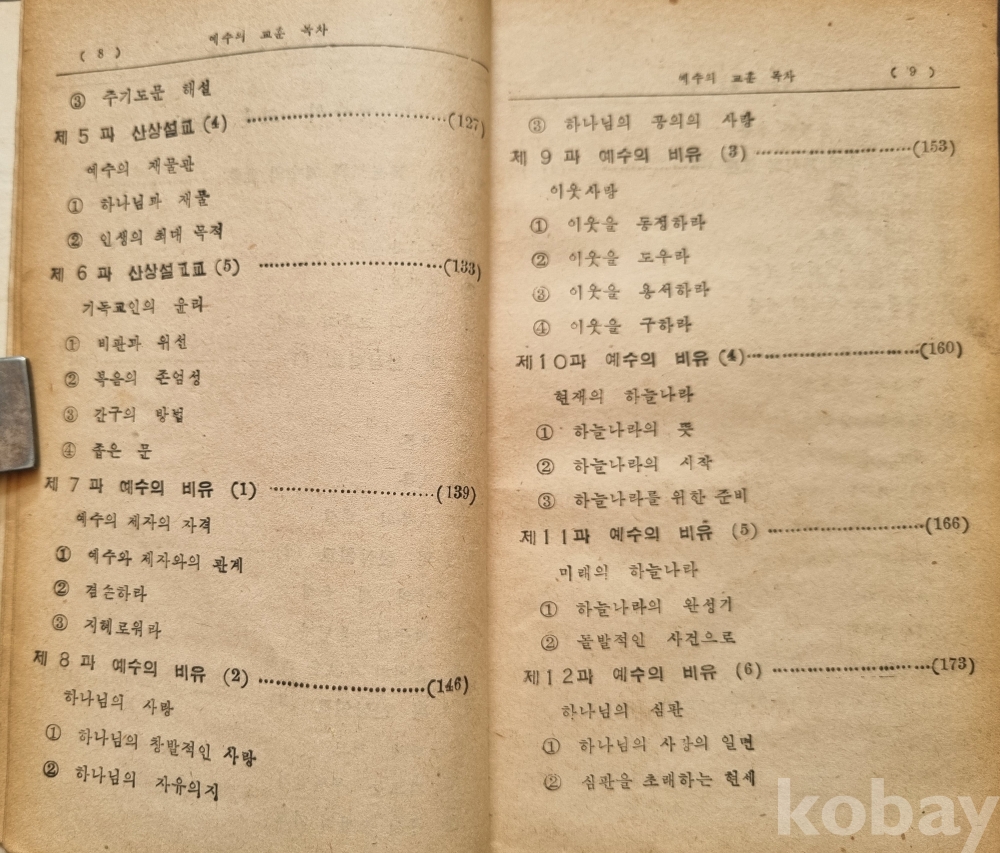 ( 8 ) 예수의 교훈 목차
③ 주기도문 해설
제 5 과 산상설교 (4) ························(127)
예수의 재물관
① 하나님과 재물
② 인생의 최대 목적
제 6 과 산상설교 (5) ························(133)
기독교인의 윤리
① 비판과 위선
② 복음의 존엄성
③ 간구의 방법
④ 좁은 문
제 7 과 예수의 비유 (1) ························(139)
예수의 제자의 자격
① 예수와 제자와의 관계
② 겸손하라
③ 지혜로워라
제 8 과 예수의 비유 (2) ························(146)
하나님의 사랑
① 하나님의 창발적인 사랑
② 하나님의 자유의지
예수의 교훈 목차 ( 9 )
③ 하나님의 공의의 사랑
제 9 과 예수의 비유 (3) ························(153)
이웃사랑
① 이웃을 동정하라
② 이웃을 도우라
③ 이웃을 용서하라
④ 이웃을 구하라
제10과 예수의 비유 (4) ························(160)
현재의 하늘나라
① 하늘나라의 뜻
② 하늘나라의 시작
③ 하늘나라를 위한 준비
제11과 예수의 비유 (5) ························(166)
미래의 하늘나라
① 하늘나라의 완성기
② 돌발적인 사건으로
제12과 예수의 비유 (6) ························(173)
하나님의 심판
① 하나님의 사랑의 일면
② 심판을 초래하는 현세
kobay